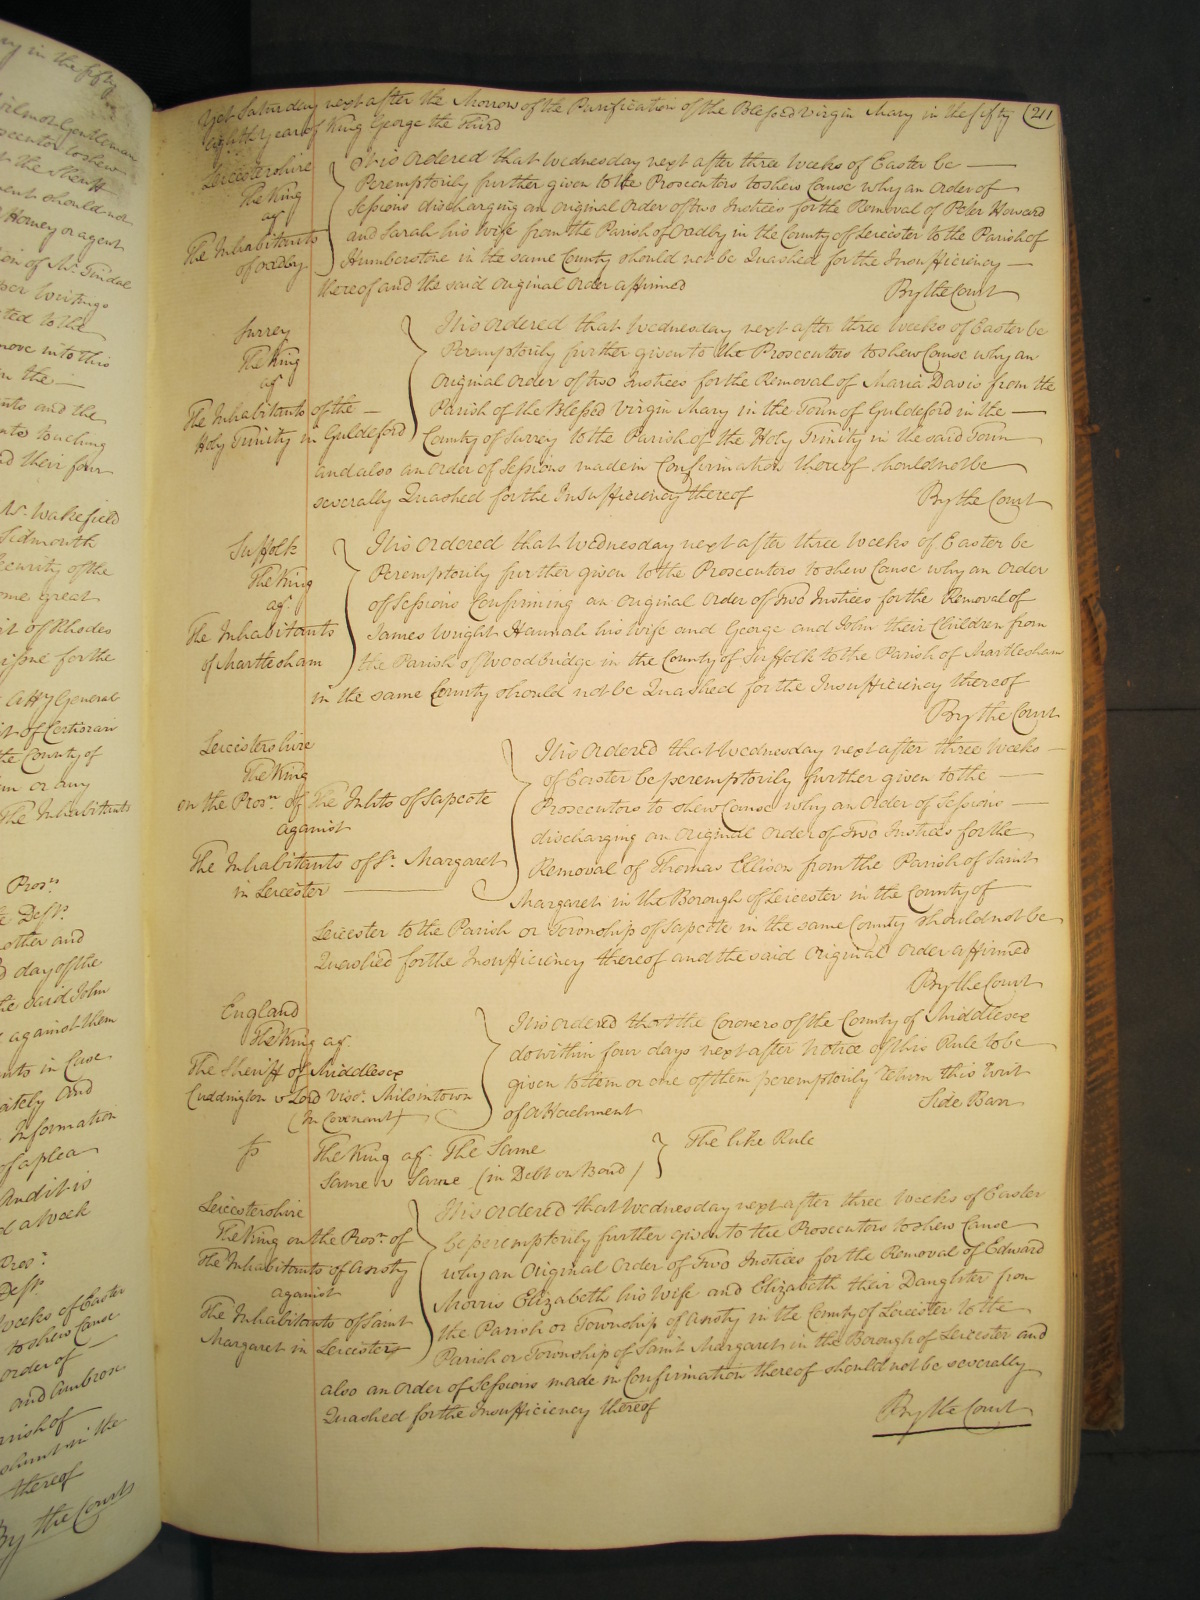 ry in the fifty
ilmor Gentleman
osecutor to shew
t the Sheriff
ment should not
Attorney or agent
ion of Mr. Tindal
per writings
ted to the
move into this
in the —
nts and the
nts touching
nd their four
Mr. Wakefield
Sidmouth
ecurity of the
ome great
it of Rhodes
risone for the
Atty General
it of Certiorari
the County of
m or any
The Inhabitants
Prosn.
Deft.
other and
day of the
the said John
against them
nts in Case
ately And
Information
of a plea
And it is
d a Week
Pros.
Deft.
weeks of Easter
to shew Cause
order of —
and Ambrose
arish of
in the
thereof
By the Court
Yet Saturday next after the Morrow of the Purification of the Blessed Virgin Mary in the fifty (211
eighth Year of King George the Third
Leicestershire
The King
agt
The Inhabitants
of Oadby
It is Ordered that Wednesday next after three Weeks of Easter be —
Peremptorily further given to the Prosecutors to shew Cause why an Order of
Sessions discharging an original Order of two Justices for the Removal of Peter Howard
and Sarah his wife from the Parish of Oadby in the County of Leicester to the Parish of
Humberstone in the same County should not be Quashed for the Insufficiency —
thereof and the said Original Order affirmed By the Court
Surrey
The King
agt
The Inhabitants of the —
Holy Trinity in Guildeford
It is Ordered that Wednesday next after three Weeks of Easter be
Peremptorily further given to the Prosecutors to shew Cause why an
Original Order of two Justices for the Removal of Maria Davis from the
Parish of the Blessed Virgin Mary in the Town of Guldeford in the —
County of Surrey to the Parish of the Holy Trinity in the said Town
and also an Order of Sessions made in Confirmation thereof should not be
severally Quashed for the Insufficiency thereof By the Court
Suffolk
The King
agt
The Inhabitants
of Martlesham
It is Ordered that Wednesday next after three Weeks of Easter be
Peremptorily further given to the Prosecutors to shew Cause why an Order
of Sessions Confirming an Original Order of Two Justices for the Removal of
James Wright Hannah his Wife and George and John their Children from
the Parish of Woodbridge in the County of Suffolk to the Parish of Martlesham
in the same County should not be Quashed for the Insufficiency thereof
By the Court
Leicestershire
The King
on the Prosn. of The Inhts of Sapcote
against
The Inhabitants of St. Margaret
in Leicester —
It is Ordered that Wednesday next after three Weeks —
of Easter be peremptorily further given to the —
Prosecutors to shew Cause why an Order of Sessions —
discharging an Original Order of Two Justices for the
Removal of Thomas Ellison from the Parish of Saint
Margaret in the Borough of Leicester in the County of
Leicester to the Parish or Township of Sapcote in the same County should not be
Quashed for the Insufficiency thereof and the said Original Order affirmed
By the Court
England
The King agt
The Sheriff of Middlesex
Cuddington v Lord Visct. Milsintown
(In Covenant)
It is ordered that the Coroners of the County of Middlesex
do within four days next after Notice of this Rule to be
given to them or one of them peremptorily return this Writ
of Attachment Side Barr
The King agt The Same
Same v Same (in Debt on Bond)
The like Rule
Leicestershire
The King on the Prosn. of
The Inhabitants of Ansty
against
The Inhabitants of Saint
Margaret in Leicester
It is Ordered that Wednesday next after three Weeks of Easter
be peremptorily further given to the Prosecutors to shew Cause
why an Original Order of Two Justices for the Removal of Edward
Morris Elizabeth his Wife and Elizabeth their Daughter from
the Parish or Township of Ansty in the County of Leicester to the
Parish or Township of Saint Margaret in the Borough of Leicester and
also an Order of Sessions made in Confirmation thereof should not be severally
Quashed for the Insufficiency thereof By the Court